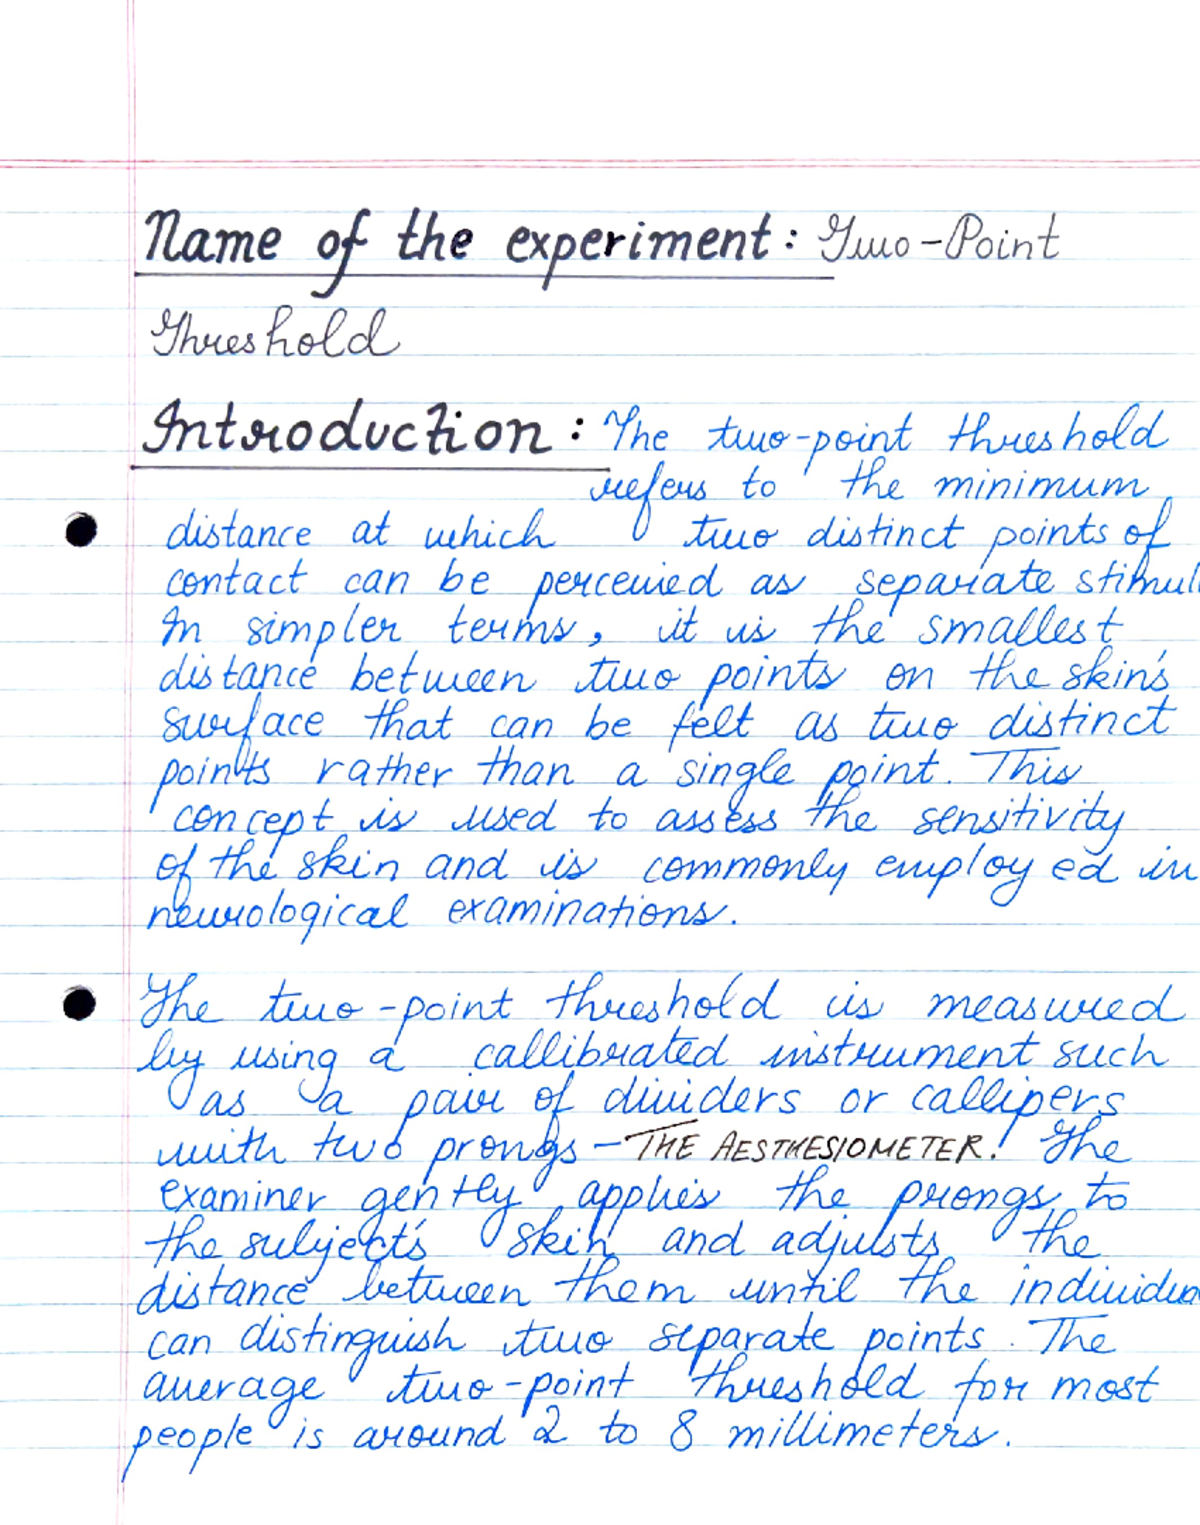 Name of the experiment: Two-Point
Threshold
Introduction: The two-point threshold
refers to the minimum
distance at which two distinct points of
contact can be perceived as separate stimuli
In simpler terms, it is the smallest
distance between two points on the skin's
surface that can be felt as two distinct
points rather than a single point. This
concept is used to assess the sensitivity
of the skin and is commonly employed in
neurological examinations.
The two-point threshold is measured
by using a callibrated instrument such
as a pair of dividers or callipers
with two prongs - THE AESTHESIOMETER. The
examiner gently applies the prongs to
the subject's skin and adjusts the
distance between them until the individua
can distinguish two separate points. The
average two-point threshold for most
people is around 2 to 8 millimeters.